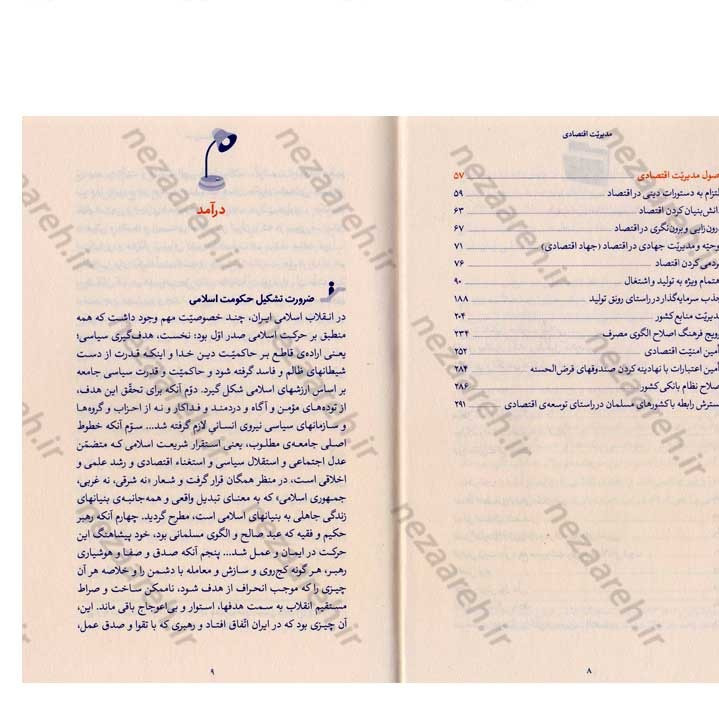 مدیریّت اقتصادی
صول مدیریّت اقتصادی ۵۷
لتزام به دستورات دینی در اقتصاد ۵۹
انش‌بنیان کردن اقتصاد ۶۳
رون‌زایی و برون‌نگری در اقتصاد ۶۷
وحیّه و مدیریّت جهادی در اقتصاد (جهاد اقتصادی) ۷۱
ردمی کردن اقتصاد ۷۶
هتمام ویژه به تولید و اشتغال ۹۰
جذب سرمایه‌گذار در راستای رونق تولید ۱۸۸
دیریّت منابع کشور ۲۰۴
رویج فرهنگ اصلاح الگوی مصرف ۲۳۴
أمین امنیّت اقتصادی ۲۵۲
أمین اعتبارات با نهادینه کردن صندوقهای قرض‌الحسنه ۲۸۴
صلاح نظام بانکی کشور ۲۸۶
سترش رابطه با کشورهای مسلمان در راستای توسعه‌ی اقتصادی ۲۹۱
۸
درآمد
ضرورت تشکیل حکومت اسلامی
در انقلاب اسلامی ایران، چند خصوصیّت مهم وجود داشت که همه
منطبق بر حرکت اسلامی صدر اوّل بود؛ نخست، هدف‌گیری سیاسی؛
یعنی اراده‌ی قاطع بر حاکمیّت دین خدا و اینکه قدرت از دست
شیطانهای ظالم و فاسد گرفته شود و حاکمیّت و قدرت سیاسی جامعه
بر اساس ارزشهای اسلامی شکل گیرد. دوّم آنکه برای تحقّق این هدف،
از توده‌های مؤمن و آگاه و دردمند و فداکار و نه از احزاب و گروه‌ها
و سازمانهای سیاسی نیروی انسانی لازم گرفته شد... سوّم آنکه خطوط
اصلی جامعه‌ی مطلوب، یعنی استقرار شریعت اسلامی که متضمّن
عدل اجتماعی و استقلال سیاسی و استغناء اقتصادی و رشد علمی و
اخلاقی است، در منظر همگان قرار گرفت و شعار «نه شرقی، نه غربی،
جمهوری اسلامی» که به معنای تبدیل واقعی و همه‌جانبه‌ی بنیانهای
زندگی جاهلی به بنیانهای اسلامی است، مطرح گردید. چهارم آنکه رهبر
حکیم و فقیه که عبد صالح و الگوی مسلمانی بود، خود پیشاهنگ این
حرکت در ایمان و عمل شد... پنجم آنکه صدق و صفا و هوشیاری
رهبر، هر گونه کج‌روی و سازش و معامله با دشمن را و خلاصه هر آن
چیزی را که موجب انحراف از هدف شود، ناممکن ساخت و صراط
مستقیم انقلاب به سمت هدفها، استوار و بی‌اعوجاج باقی ماند. این،
آن چیزی بود که در ایران اتّفاق افتاد و رهبری که با تقوا و صدق عمل،
۹
nezaareh.ir
nezaareh.ir
nezaareh.ir
nezaareh.ir
nezaareh.ir
nezaareh.ir
nezaareh.ir
nezaareh.ir